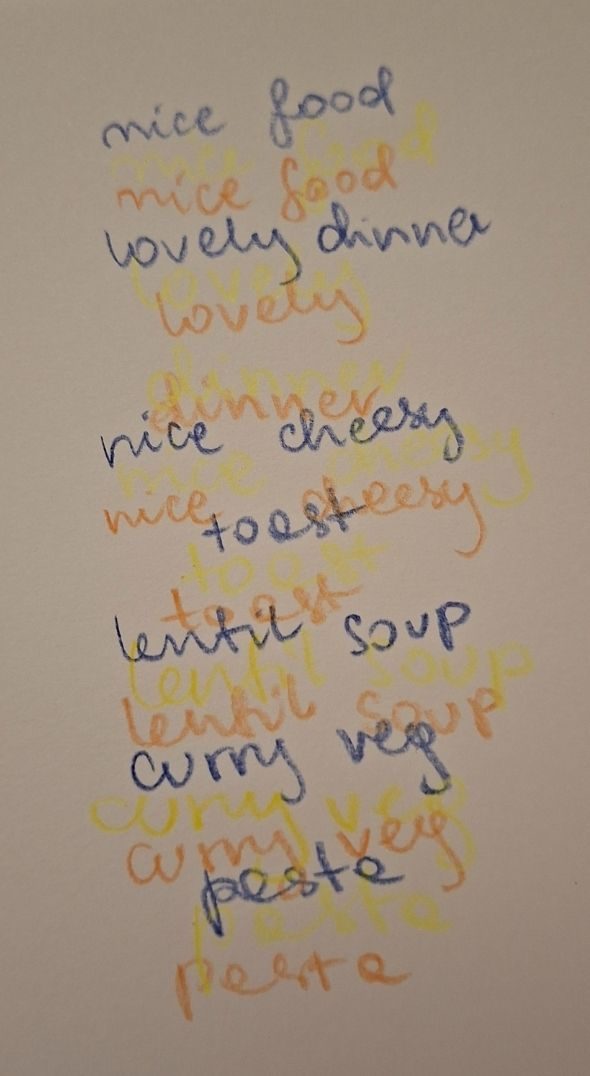 nice food
nice food
nice food
lovely dinner
lovely
lovely
dinner
dinner
nice cheesy
nice cheesy
nice cheesy
toast
toast
toast
lentil soup
lentil soup
lentil soup
curry veg
curry veg
curry veg
pasta
pasta
pasta